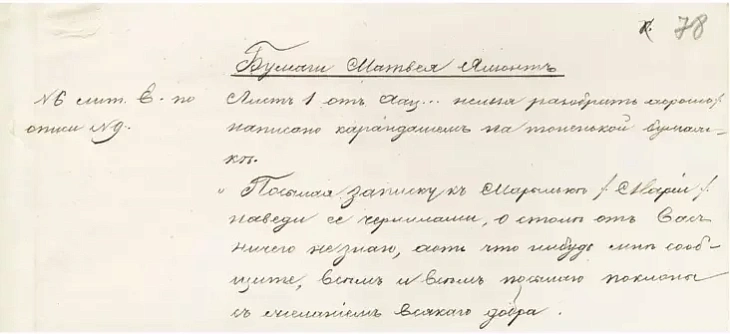 к. 78
Бумаги Матвея Ямонтъ
№6 лит. Е. по
описи №9.
Листъ 1 отъ Аац... нельзя разобрать хорошо /
написано карандашемъ на тоненькой бумаж-
кѣ.
" Посылая записку къ Марылькѣ / Маріи /
наведи ее чернилами, о столь отъ Васъ
ничего не знаю, хоть что нибудь мнѣ сооб-
щите, всѣмъ и всѣмъ посылаю поклоны
съ желаніемъ всякаго добра.